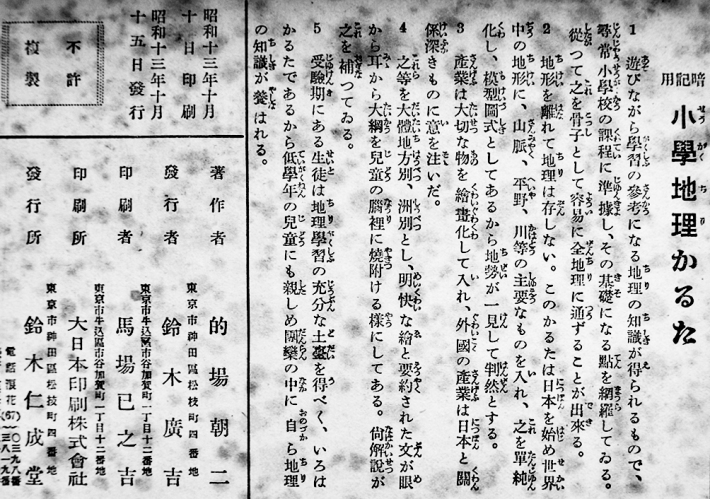 暗記用 小學地理かるた
1 遊びながら學習の參考になる地理の知識が得られるもので、
尋常小學校の課程に準據し、その基礎になる點を網羅してゐる。
從つて之を骨子として容易に全地理に通ずることが出來る。
2 地形を離れて地理は存しない。このかるたは日本を始め世界
中の地形に、山脈、平野、川等の主要なものを入れ、之を單純
化し、模型圖式としてあるから地勢が一見して判然とする。
3 產業は大切な物を繪畫化して入れ、外國の產業は日本と關
係深きものに意を注いだ。
4 之等を大體地方別、洲別とし、明快な繪と要約された文が眼
から耳から大綱を兒童の腦裡に燒附ける樣にしてある。尙解說が
之を補つてゐる。
5 受驗期にある生徒は地理學習の充分な土臺を得べく、いろは
かるたであるから低學年の兒童にも親しめ團欒の中に自ら地理
の知識が養はれる。
昭和十三年十月
十日印刷
昭和十三年十月
十五日發行
不許
複製
著作者 的場朝二
東京市神田區松枝町四番地
發行者 鈴木廣吉
東京市牛込區市谷加賀町一丁目十二番地
印刷者 馬場巳之吉
東京市牛込區市谷加賀町一丁目十二番地
印刷所 大日本印刷株式會社
東京市神田區松枝町四番地
發行所 鈴木仁成堂
電話浪花(67)